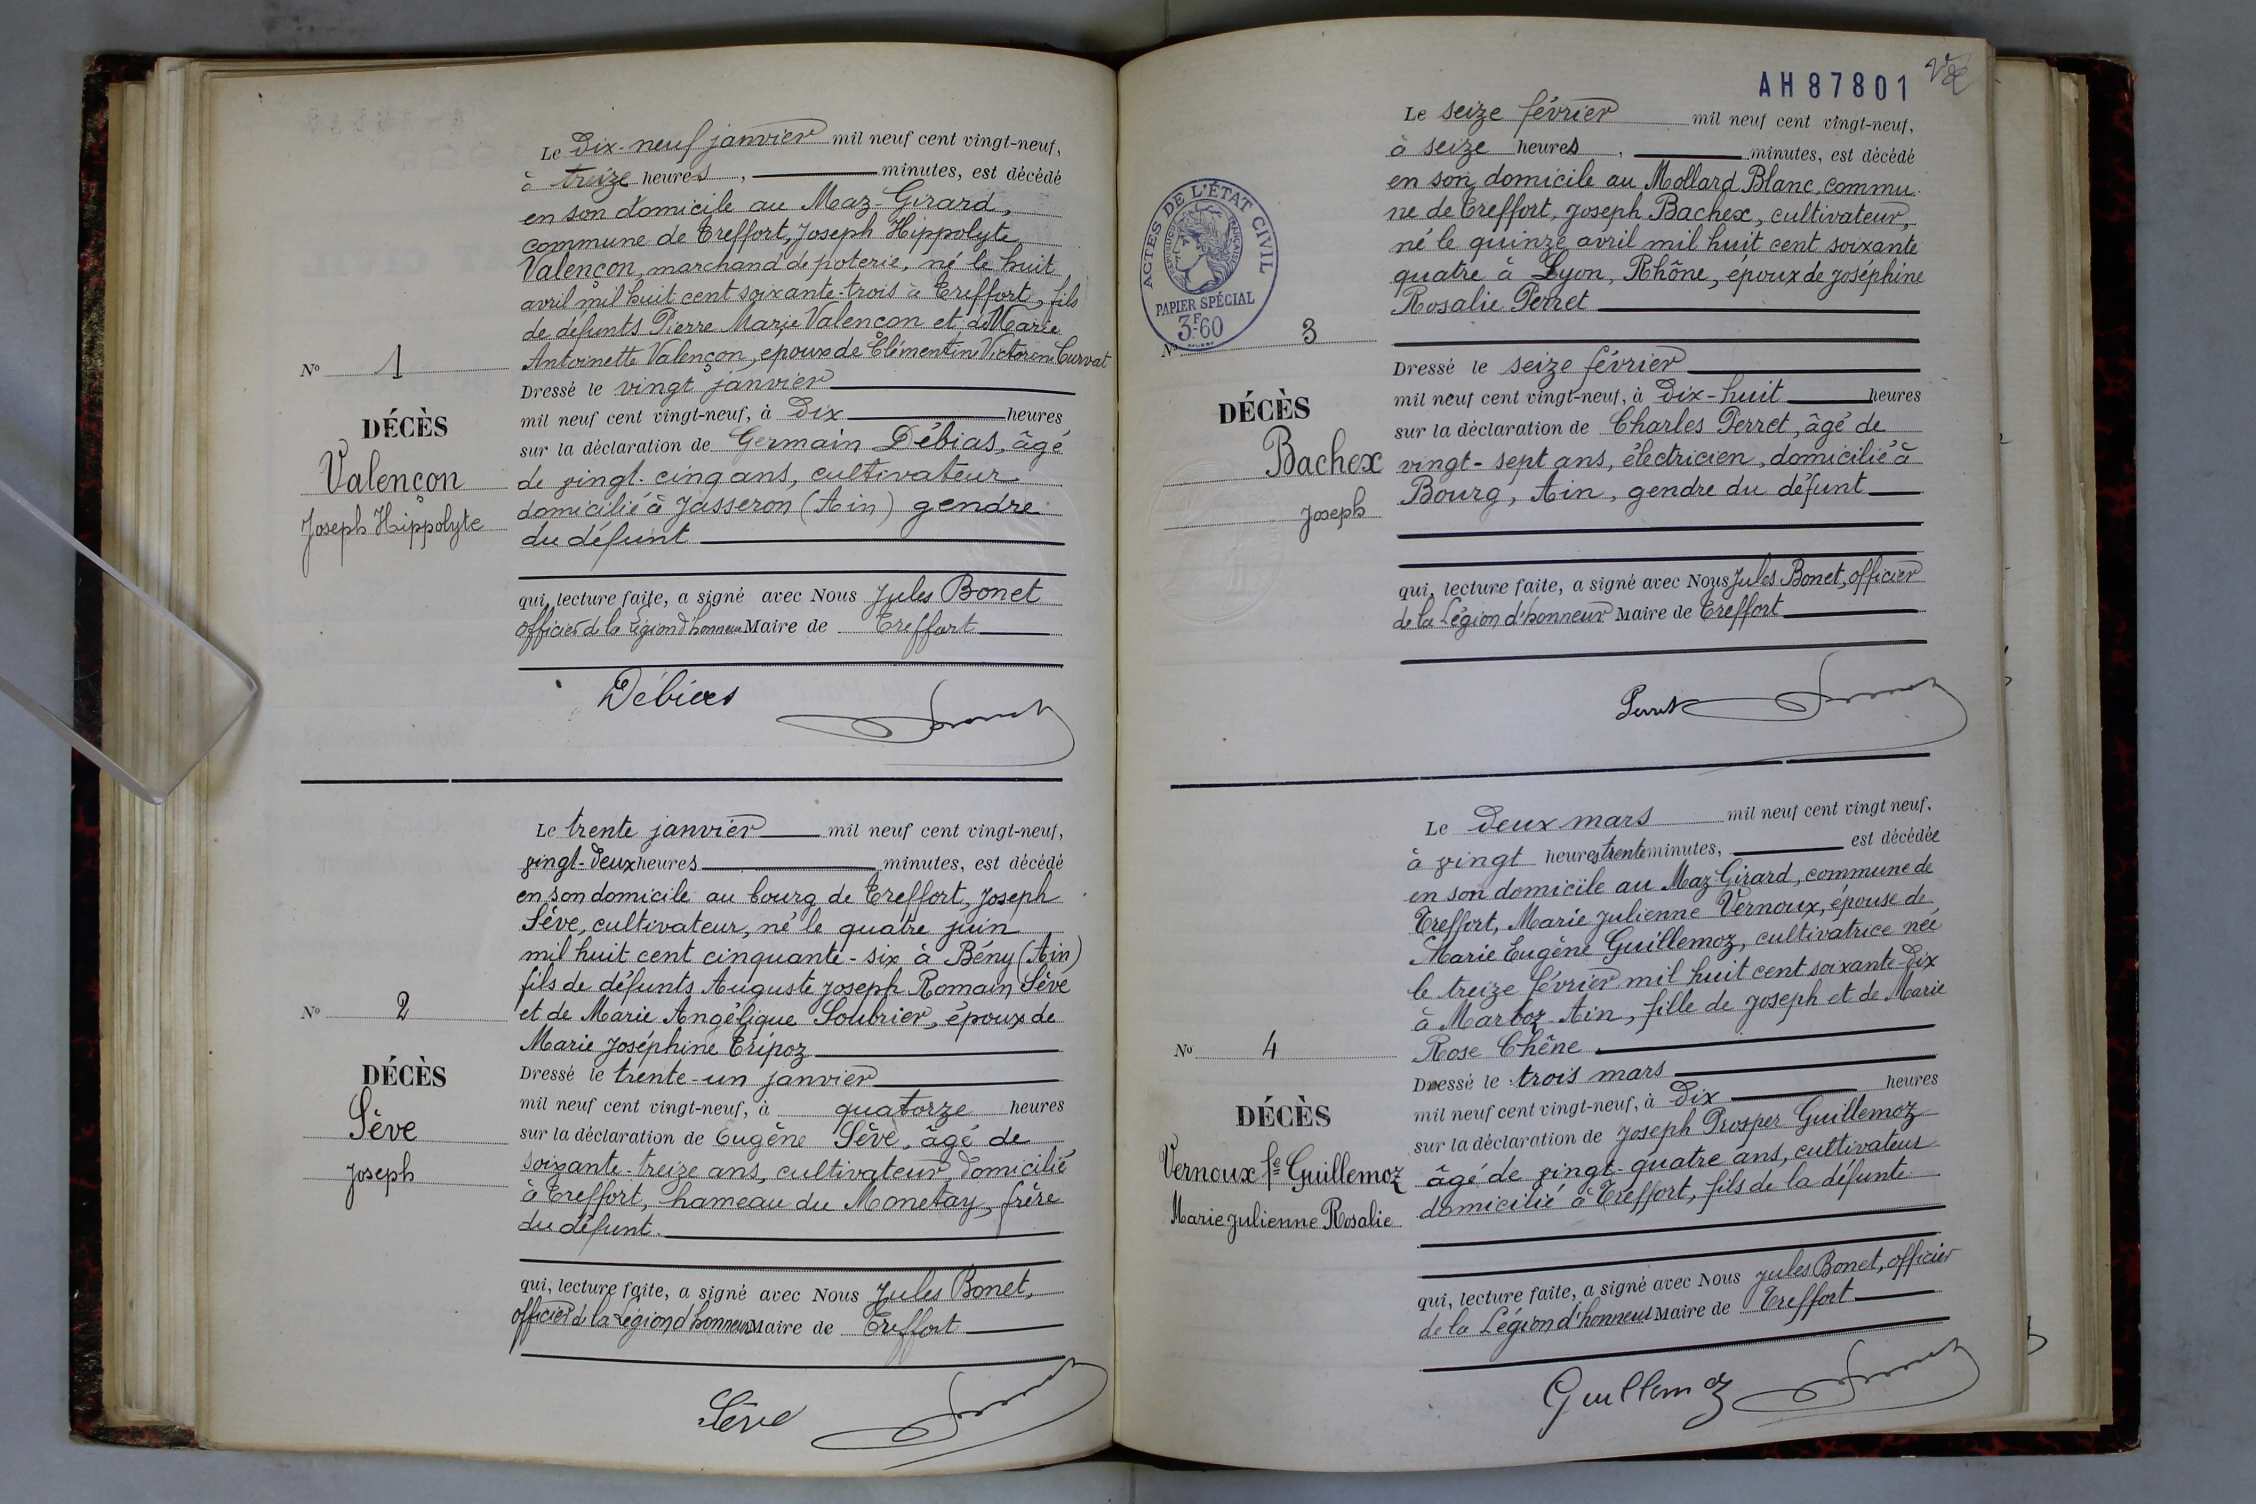 Le Dix-neuf janvier mil neuf cent vingt-neuf,
à treize heures, minutes, est décédé
en son domicile au Maz-Girard,
commune de Treffort, Joseph Hippolyte
Valençon, marchand de poterie, né le huit
avril mil huit cent soixante-trois à Treffort, fils
de défunts Pierre Marie Valençon et de Marie
Antoinette Valençon, époux de Clémentine Victorine Curvat
No 1
Dressé le vingt janvier
mil neuf cent vingt-neuf, à Dix heures
DÉCÈS
sur la déclaration de Germain Débias, âgé
Valençon
de vingt-cinq ans, cultivateur
Joseph Hippolyte
domicilié à Jasseron (Ain) gendre
du défunt
qui, lecture faite, a signé avec Nous Jules Bonet
officier de la Légion d'honneur Maire de Treffort
Débias
Le trente janvier mil neuf cent vingt-neuf,
vingt-Deux heures minutes, est décédé
en son domicile au bourg de Treffort, Joseph
Sève, cultivateur, né le quatre juin
mil huit cent cinquante-six à Bény (Ain)
fils de défunts Auguste Joseph Romain Sève
No 2
et de Marie Angélique Soubrier, époux de
Marie Joséphine Tripoz
DÉCÈS
Dressé le trente-un janvier
mil neuf cent vingt-neuf, à quatorze heures
Sève
sur la déclaration de Eugène Sève, âgé de
Joseph
soixante-treize ans, cultivateur, domicilié
à Treffort, hameau du Monetay, frère
du défunt.
qui, lecture faite, a signé avec Nous Jules Bonet,
officier de la Légion d'honneur Maire de Treffort
Sève
AH 87801
Le seize février mil neuf cent vingt-neuf,
à seize heures, minutes, est décédé
en son domicile au Mollard Blanc, commu-
ne de Treffort, Joseph Bachex, cultivateur,
né le quinze avril mil huit cent soixante
quatre à Lyon, Rhône, époux de Joséphine
Rosalie Perret
ACTES DE L'ÉTAT CIVIL
RÉPUBLIQUE FRANÇAISE
PAPIER SPÉCIAL
3F.60
No 3
Dressé le seize février
mil neuf cent vingt-neuf, à Dix-huit heures
DÉCÈS
sur la déclaration de Charles Perret, âgé de
Bachex
vingt-sept ans, électricien, domicilié à
Joseph
Bourg, Ain, gendre du défunt
qui, lecture faite, a signé avec Nous Jules Bonet, officier
de la Légion d'honneur Maire de Treffort
Perret
Le Deux mars mil neuf cent vingt neuf,
à vingt heures trente minutes, est décédée
en son domicile au Maz Girard, commune de
Treffort, Marie Julienne Vernoux, épouse de
Marie Eugène Guillemoz, cultivatrice née
le treize février mil huit cent soixante-Dix
à Marboz-Ain, fille de Joseph et de Marie
Rose Chêne
No 4
Dressé le trois mars
mil neuf cent vingt-neuf, à Dix heures
DÉCÈS
sur la déclaration de Joseph Prosper Guillemoz
Vernoux fe Guillemoz
âgé de vingt-quatre ans, cultivateur
Marie Julienne Rosalie
domicilié à Treffort, fils de la défunte
qui, lecture faite, a signé avec Nous Jules Bonet, officier
de la Légion d'honneur Maire de Treffort
Guillemoz